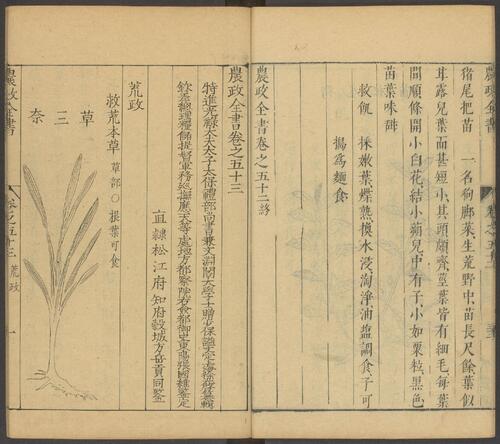 猪尾把苗 一名狗脚菜生荒野中苗長尺餘葉似
甘露兒葉而甚短小其頭頗齊莖葉皆有細毛每葉
間順條開小白花結小蒴兒中有子小如粟粒黑色
苗葉味甜
救飢 採嫩葉煠熟換水浸淘淨油鹽調食子可
搗為麵食
農政全書卷之五十二終
農政全書卷之五十三
特進光祿大夫太子太保禮部尚書兼文淵閣大學士贈少保謚文定上海徐光啓纂輯
欽差總理糧儲提督軍務巡撫應天等處地方都察院右僉都御史東陽張國維鑒定
直隸松江府知府穀城方岳貢同鑒
荒政
救荒本草 草部○根葉可食
草三奈
農政全書 卷之五十三 荒政 一